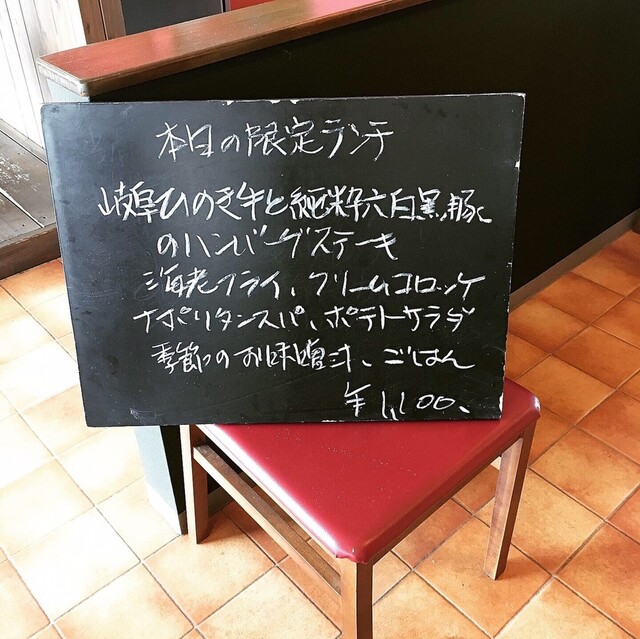 本日の限定ランチ
岐阜ひのき牛と純粋六白黒豚
のハンバーグステーキ
海老フライ、クリームコロッケ
ナポリタンスパ、ポテトサラダ
季節のお味噌汁、ごはん
¥1,100、